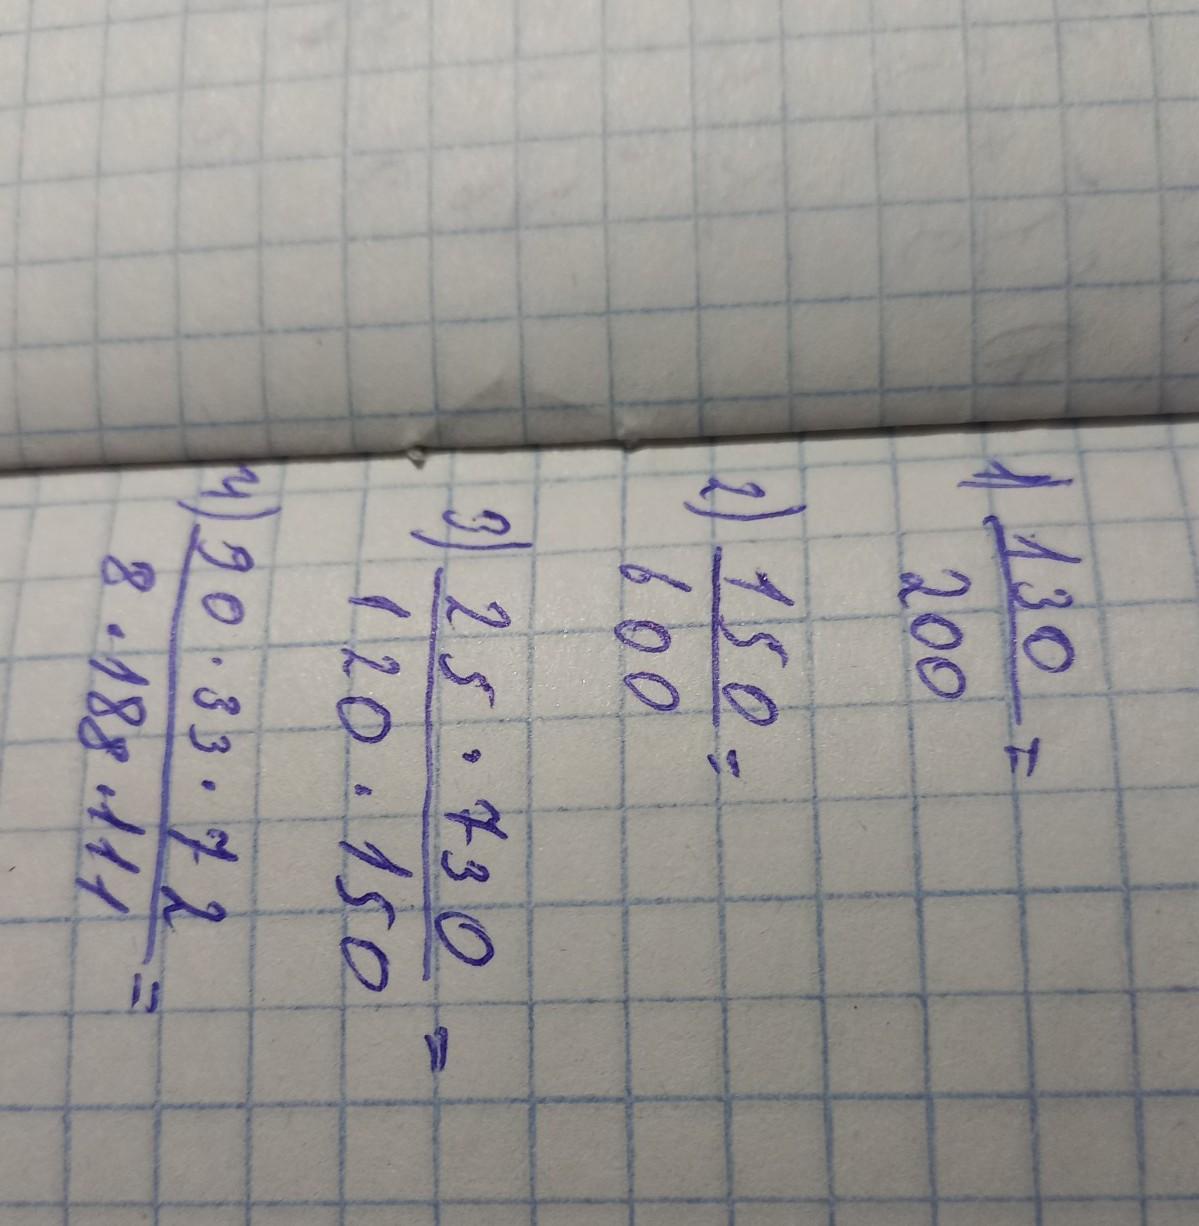 1) 130 =
200
2) 150 =
600
3) 25 · 730 =
120 · 150
4) 20 · 33 · 72 =
8 · 188 · 111